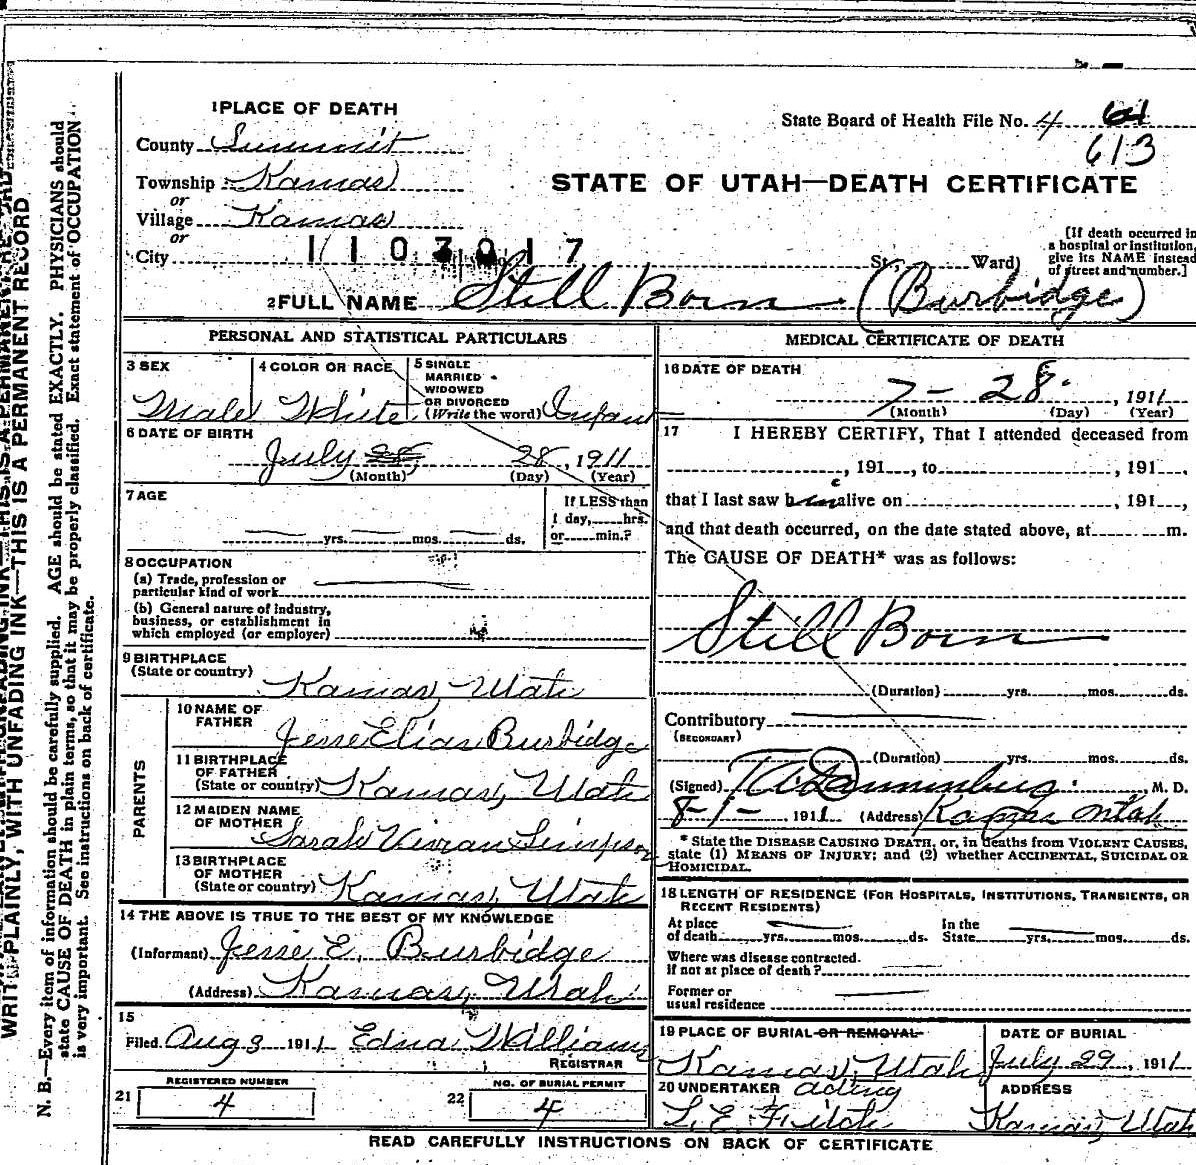 1 PLACE OF DEATH
County Summit
State Board of Health File No. 4 61
613
Township Kamas
or
Village Kamas
or
City
STATE OF UTAH—DEATH CERTIFICATE
St. Ward)
[If death occurred in
a hospital or institution,
give its NAME instead
of street and number.]
2 FULL NAME Still Born (Burbidge)
PERSONAL AND STATISTICAL PARTICULARS
3 SEX
Male
4 COLOR OR RACE
White
5 SINGLE
MARRIED
WIDOWED
OR DIVORCED
(Write the word) Infant
6 DATE OF BIRTH
July 28 28, 1911
(Month) (Day) (Year)
7 AGE
yrs. mos. ds.
If LESS than
1 day, hrs.
or min.?
8 OCCUPATION
(a) Trade, profession or
particular kind of work
(b) General nature of industry,
business, or establishment in
which employed (or employer)
9 BIRTHPLACE
(State or country) Kamas, Utah
PARENTS
10 NAME OF
FATHER Jesse Elias Burbidge
11 BIRTHPLACE
OF FATHER
(State or country) Kamas, Utah
12 MAIDEN NAME
OF MOTHER Sarah Vivian Simpson
13 BIRTHPLACE
OF MOTHER
(State or country) Kamas, Utah
14 THE ABOVE IS TRUE TO THE BEST OF MY KNOWLEDGE
(Informant) Jesse E. Burbidge
(Address) Kamas, Utah
15
Filed Aug 3 1911 Edna Williams
REGISTRAR
REGISTERED NUMBER
21 4
NO. OF BURIAL PERMIT
22 4
MEDICAL CERTIFICATE OF DEATH
16 DATE OF DEATH
7 - 28 , 1911
(Month) (Day) (Year)
17 I HEREBY CERTIFY, That I attended deceased from
, 191 , to , 191 ,
that I last saw h alive on , 191 ,
and that death occurred, on the date stated above, at m.
The CAUSE OF DEATH* was as follows:
Still Born
(Duration) yrs. mos. ds.
Contributory
(SECONDARY)
(Duration) yrs. mos. ds.
(Signed) M. D.
8-1- 1911 (Address) Kamas Utah
* State the DISEASE CAUSING DEATH, or, in deaths from VIOLENT CAUSES,
state (1) MEANS OF INJURY; and (2) whether ACCIDENTAL, SUICIDAL OR
HOMICIDAL.
18 LENGTH OF RESIDENCE (FOR HOSPITALS, INSTITUTIONS, TRANSIENTS, OR
RECENT RESIDENTS)
At place In the
of death yrs. mos. ds. State yrs. mos. ds.
Where was disease contracted.
if not at place of death?
Former or
usual residence
19 PLACE OF BURIAL OR REMOVAL
Kamas, Utah
DATE OF BURIAL
July 29, 1911
20 UNDERTAKER acting
ADDRESS
Kamas, Utah
READ CAREFULLY INSTRUCTIONS ON BACK OF CERTIFICATE
WRITE PLAINLY, WITH UNFADING INK—THIS IS A PERMANENT RECORD
N. B.—Every item of information should be carefully supplied. AGE should be stated EXACTLY. PHYSICIANS should
state CAUSE OF DEATH in plain terms, so that it may be properly classified. Exact statement of OCCUPATION
is very important. See instructions on back of certificate.